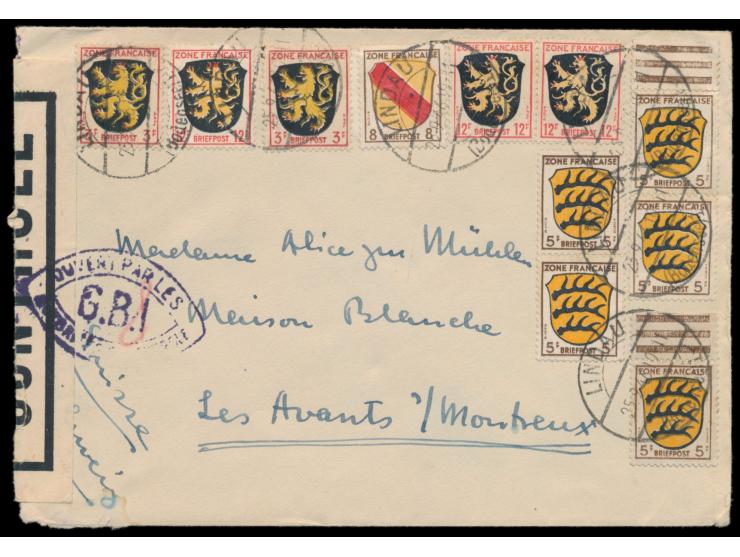 ZONE FRANÇAISE
3F BRIEFPOST 3F
ZONE FRANÇAISE
BRIEFPOST 12F
ZONE FRANÇAISE
3F BRIEFPOST 3F
ZONE FRANÇAISE
8F BRIEFPOST 8F
ZONE FRANÇAISE
12F BRIEFPOST 12F
ZONE FRANÇAISE
12F BRIEFPOST 12F
ZONE FRANÇAISE
BRIEFPOST 5F
ZONE FRANÇAISE
5F BRIEFPOST 5F
ZONE FRANÇAISE
5F BRIEFPOST 5F
ZONE FRANÇAISE
5F BRIEFPOST 5F
ZONE FRANÇAISE
5F BRIEFPOST 5F
LINDAU
LINDAU
OUVERT PAR LES
G.B.I
Madame Alice zur Mühlen
Maison Blanche
Les Avants s/Montreux
Suisse